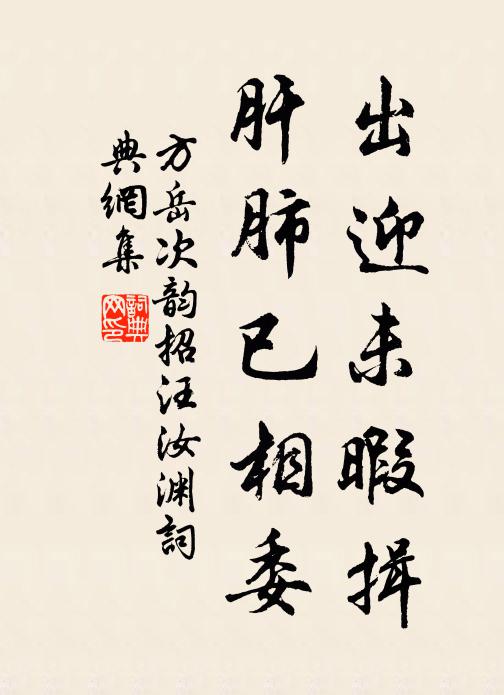 出迎未暇揖
肝肺已相委
方岳次韵招汪汝渊詞
典網集
詞典网印